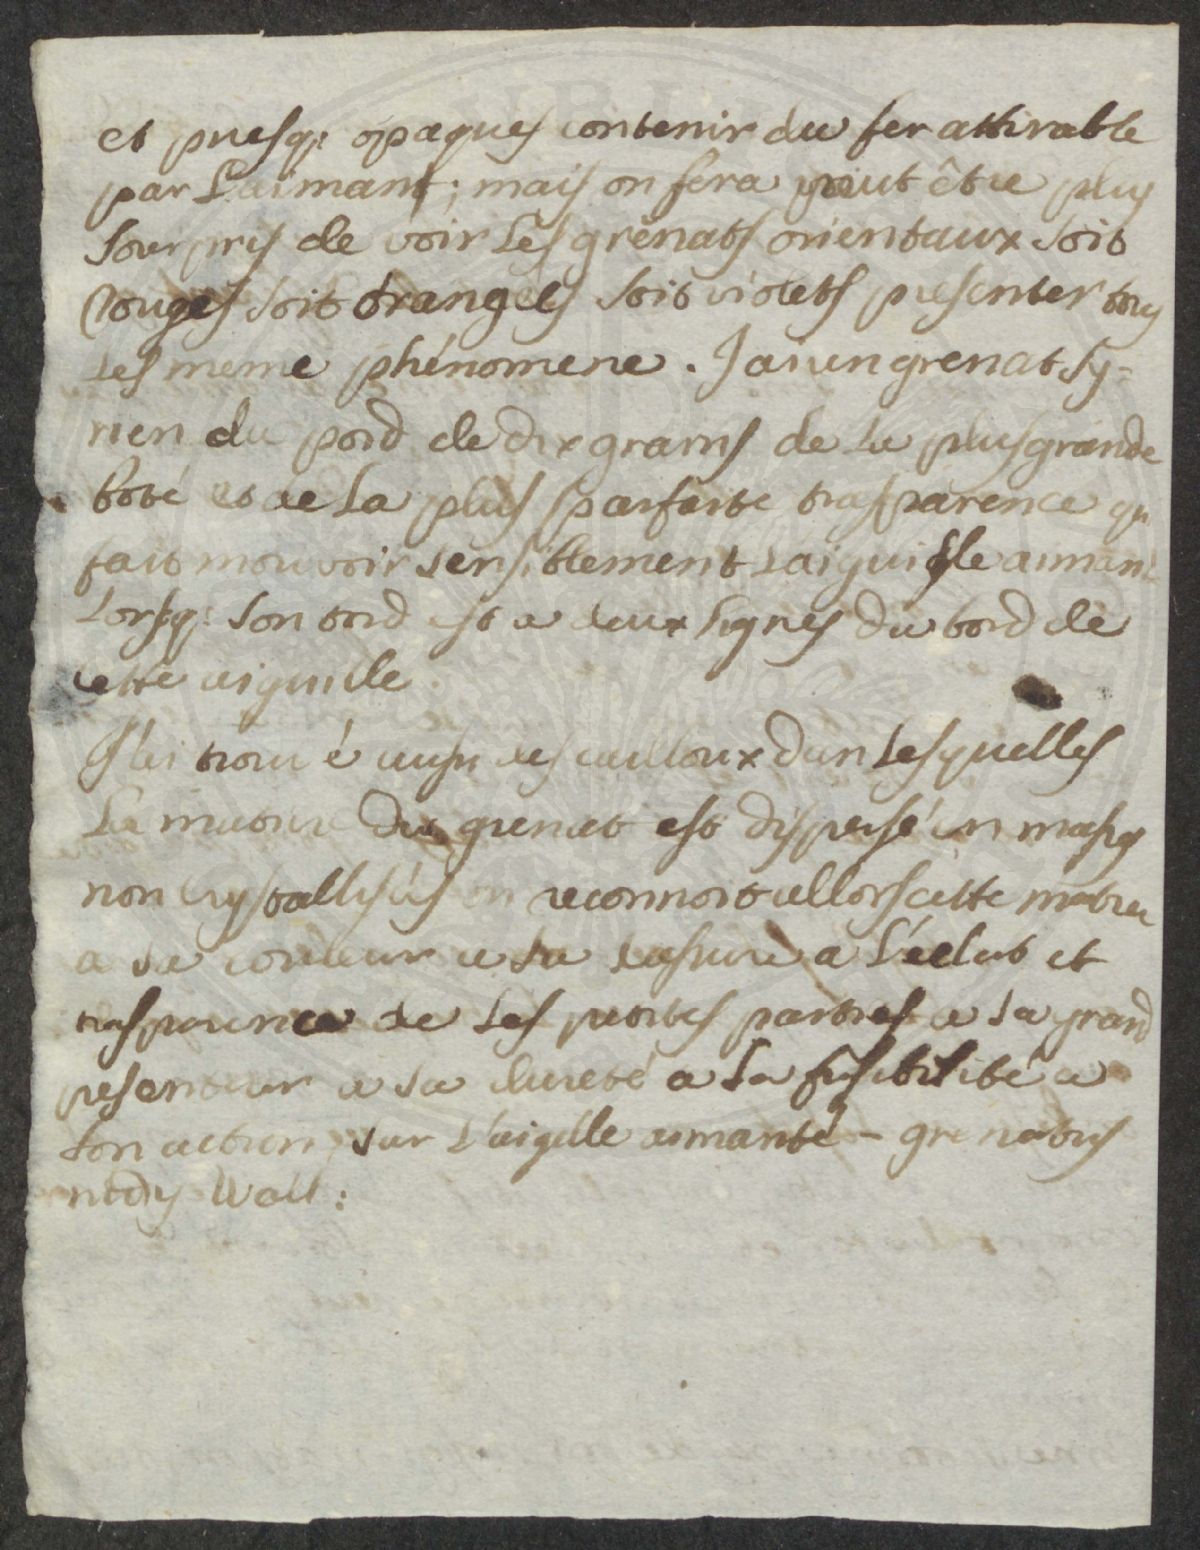 et presq: opaques contenir du fer attirable
par L'aimant; mais on sera peut être plus
Surpris de voir Les grénats orientaux soit
Rouges soit orangées soit violets presenter tous
Les meme phénomene. J'ai un grenat Sy-
rien du poid de dix grains de La plus grande
boté et de La plus parfaite trasparence qui
fait mouvoir sensiblement L'aiguille aimant
Lorsq: son bord est a deux lignes du bord de
cette aiguille
J'ai trouvé aussi des cailloux dans Lesquelles
La matiere du grenat est dispersé en masses
non Crystallisées on reconnoit allors cette matiere
a sa couleur a sa cassure a l'éclat et
trasparence de Ses petites parties a sa grand
pesanteur a sa dureté a La fusibilité a
Son action sur L'aigille aimanté - grenatus
rudis Wall: